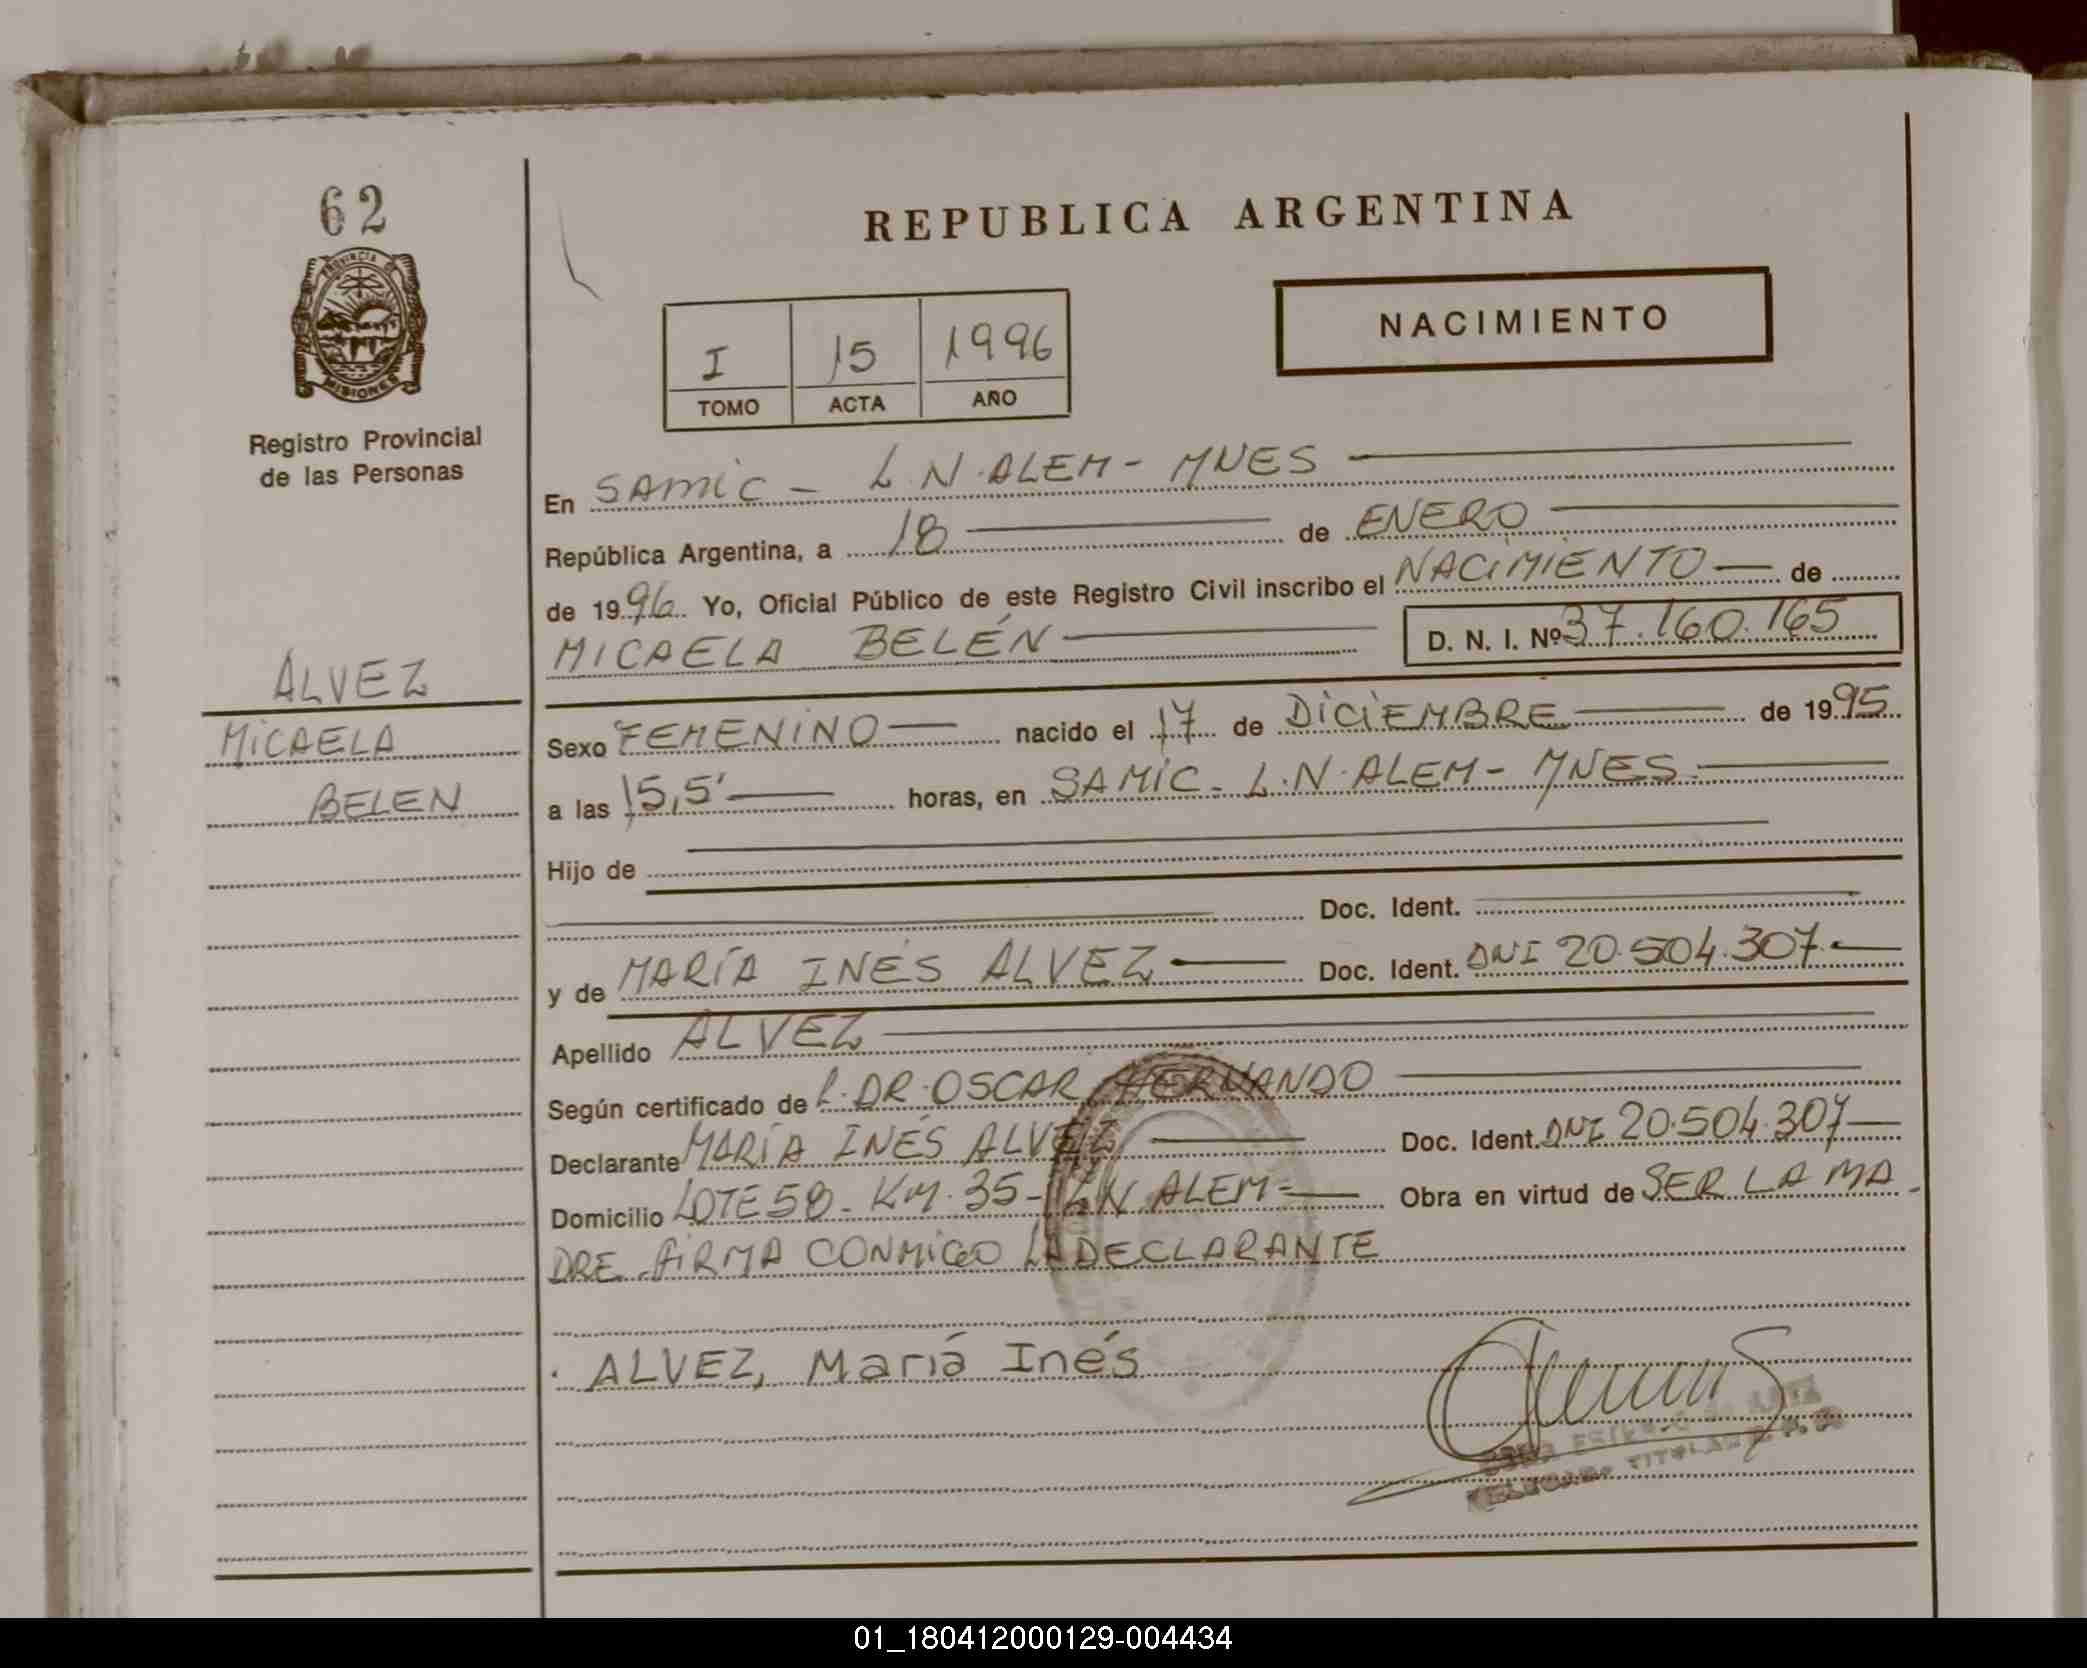 62
PROVINCIA DE
MISIONES
Registro Provincial
de las Personas
ALVEZ
MICAELA
BELEN
REPUBLICA ARGENTINA
I 15 1996
TOMO ACTA AÑO
NACIMIENTO
En SAMIC - L.N. ALEM - MNES
República Argentina, a 18 de ENERO
de 1996 Yo, Oficial Público de este Registro Civil inscribo el NACIMIENTO de
MICAELA BELÉN D. N. I. Nº 37.160.165
Sexo FEMENINO nacido el 17 de DICIEMBRE de 1995
a las 15,5' horas, en SAMIC - L.N. ALEM - MNES
Hijo de
Doc. Ident.
y de MARÍA INÉS ALVEZ Doc. Ident. DNI 20.504.307
Apellido ALVEZ
Según certificado de DR. OSCAR HERNANDO
Declarante MARÍA INÉS ALVEZ Doc. Ident. DNI 20.504.307
Domicilio LOTE 58 - KM. 35 - L.N. ALEM - Obra en virtud de SER LA MA-
DRE. FIRMA CONMIGO LA DECLARANTE
ALVEZ, María Inés
01_180412000129-004434